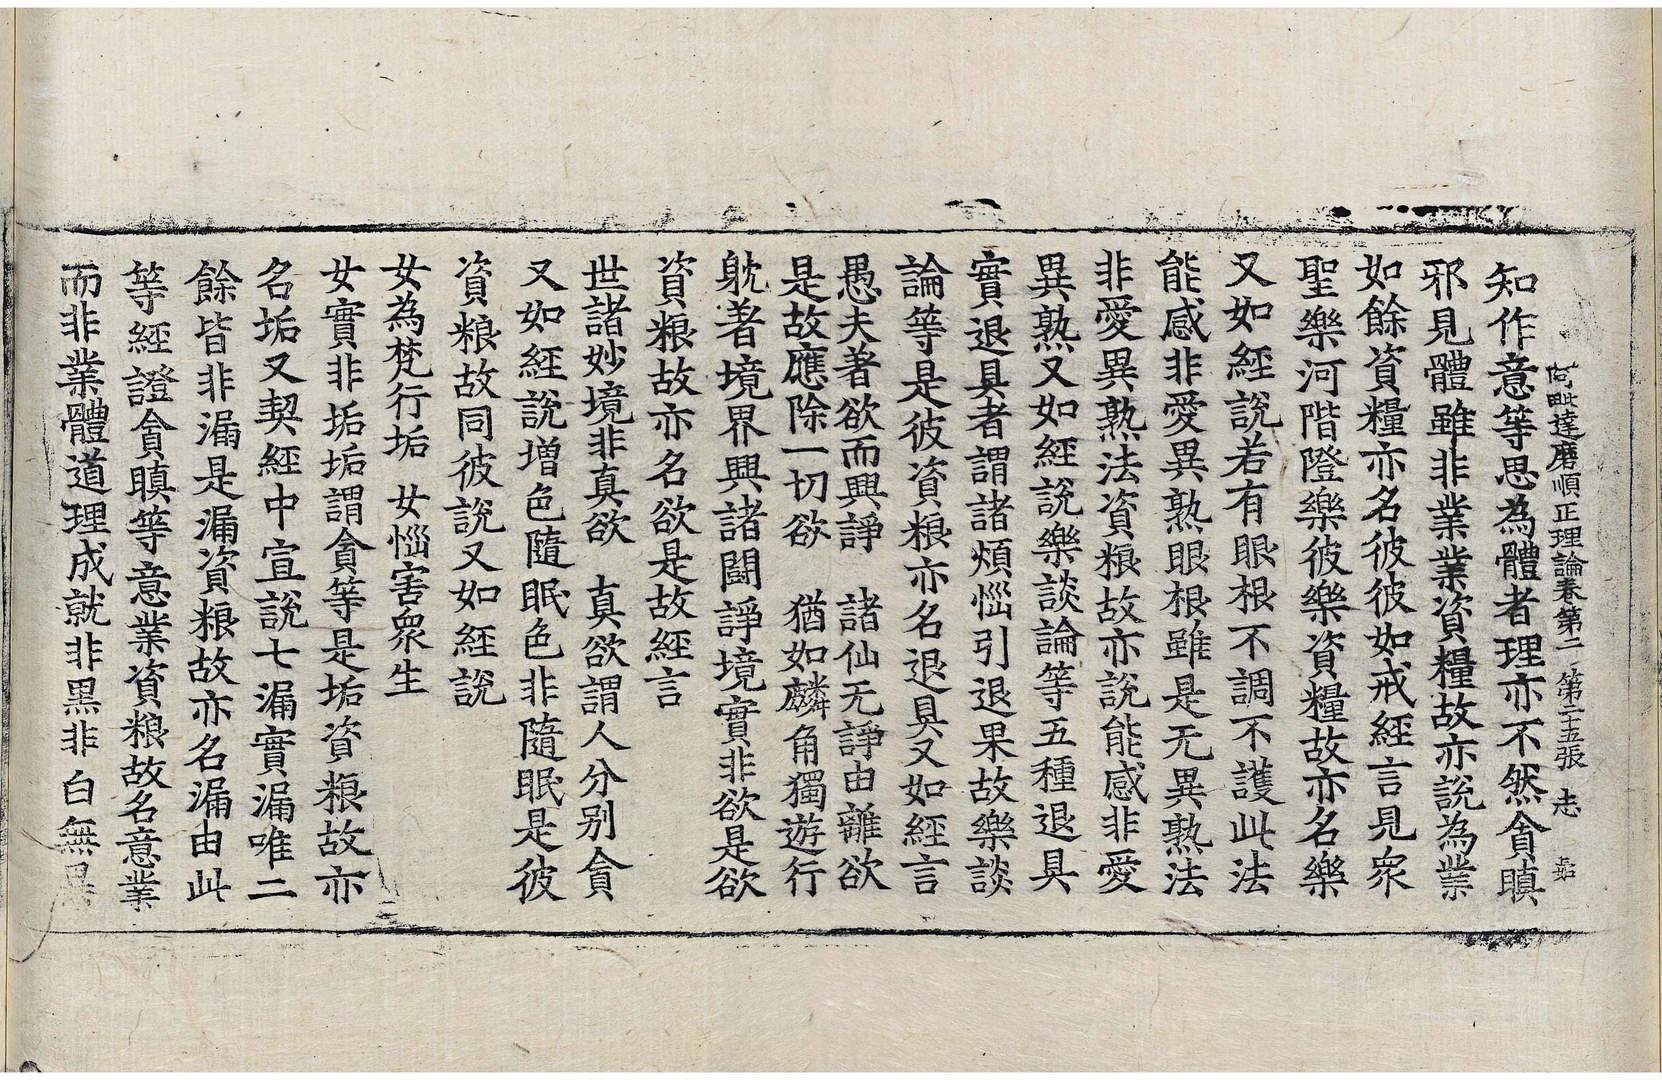 阿毗達磨順正理論卷第二 第二十五張 志
知作意等思為體者理亦不然貪瞋
邪見體雖非業業資糧故亦說為業
如餘資糧亦名彼彼如戒經言見衆
聖樂河階隥樂彼樂資糧故亦名樂
又如經說若有眼根不調不護此法
能感非愛異熟眼根雖是无異熟法
非愛異熟法資粮故亦說能感非愛
異熟又如經說樂談論等五種退具
實退具者謂諸煩惱引退果故樂談
論等是彼資粮亦名退具又如經言
愚夫著欲而興諍 諸仙无諍由離欲
是故應除一切欲 猶如麟角獨遊行
躭著境界興諸鬪諍境實非欲是欲
資粮故亦名欲是故經言
世諸妙境非真欲 真欲謂人分別貪
又如經說增色隨眠色非隨眠是彼
資粮故同彼說又如經說
女為梵行垢 女惱害衆生
女實非垢垢謂貪等是垢資粮故亦
名垢又契經中宣說七漏實漏唯二
餘皆非漏是漏資粮故亦名漏由此
等經證貪瞋等意業資粮故名意業
而非業體道理成就非黑非白無異